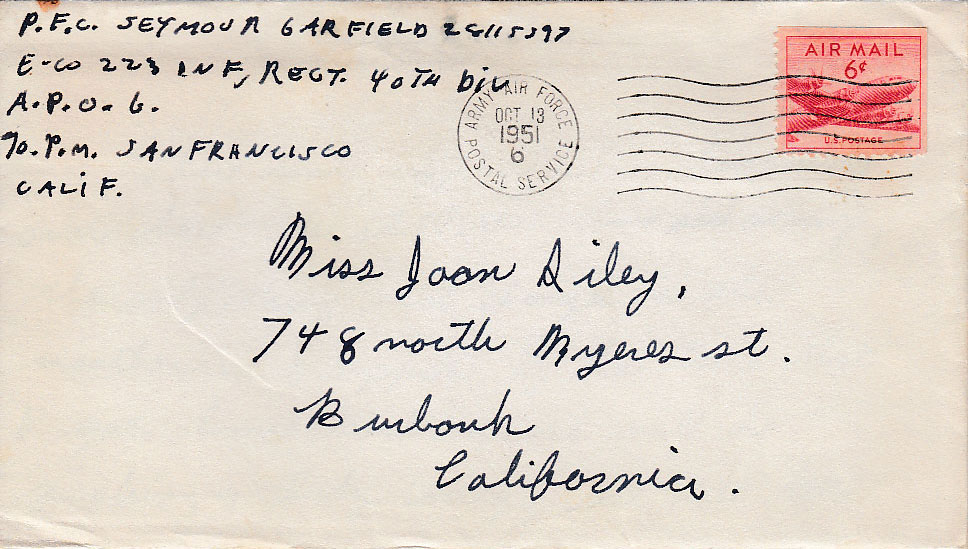 P.F.C. SEYMOUR GARFIELD
E-CO 223 INF, REGT. 40TH DIV
A.P.O. 6.
%.P.M. SAN FRANCISCO
CALIF.
ARMY AIR FORCE
OCT 13
1951
6
POSTAL SERVICE
AIR MAIL
6¢
U.S. POSTAGE
Miss Joan
748 north Myeres st.
Burbank
California.